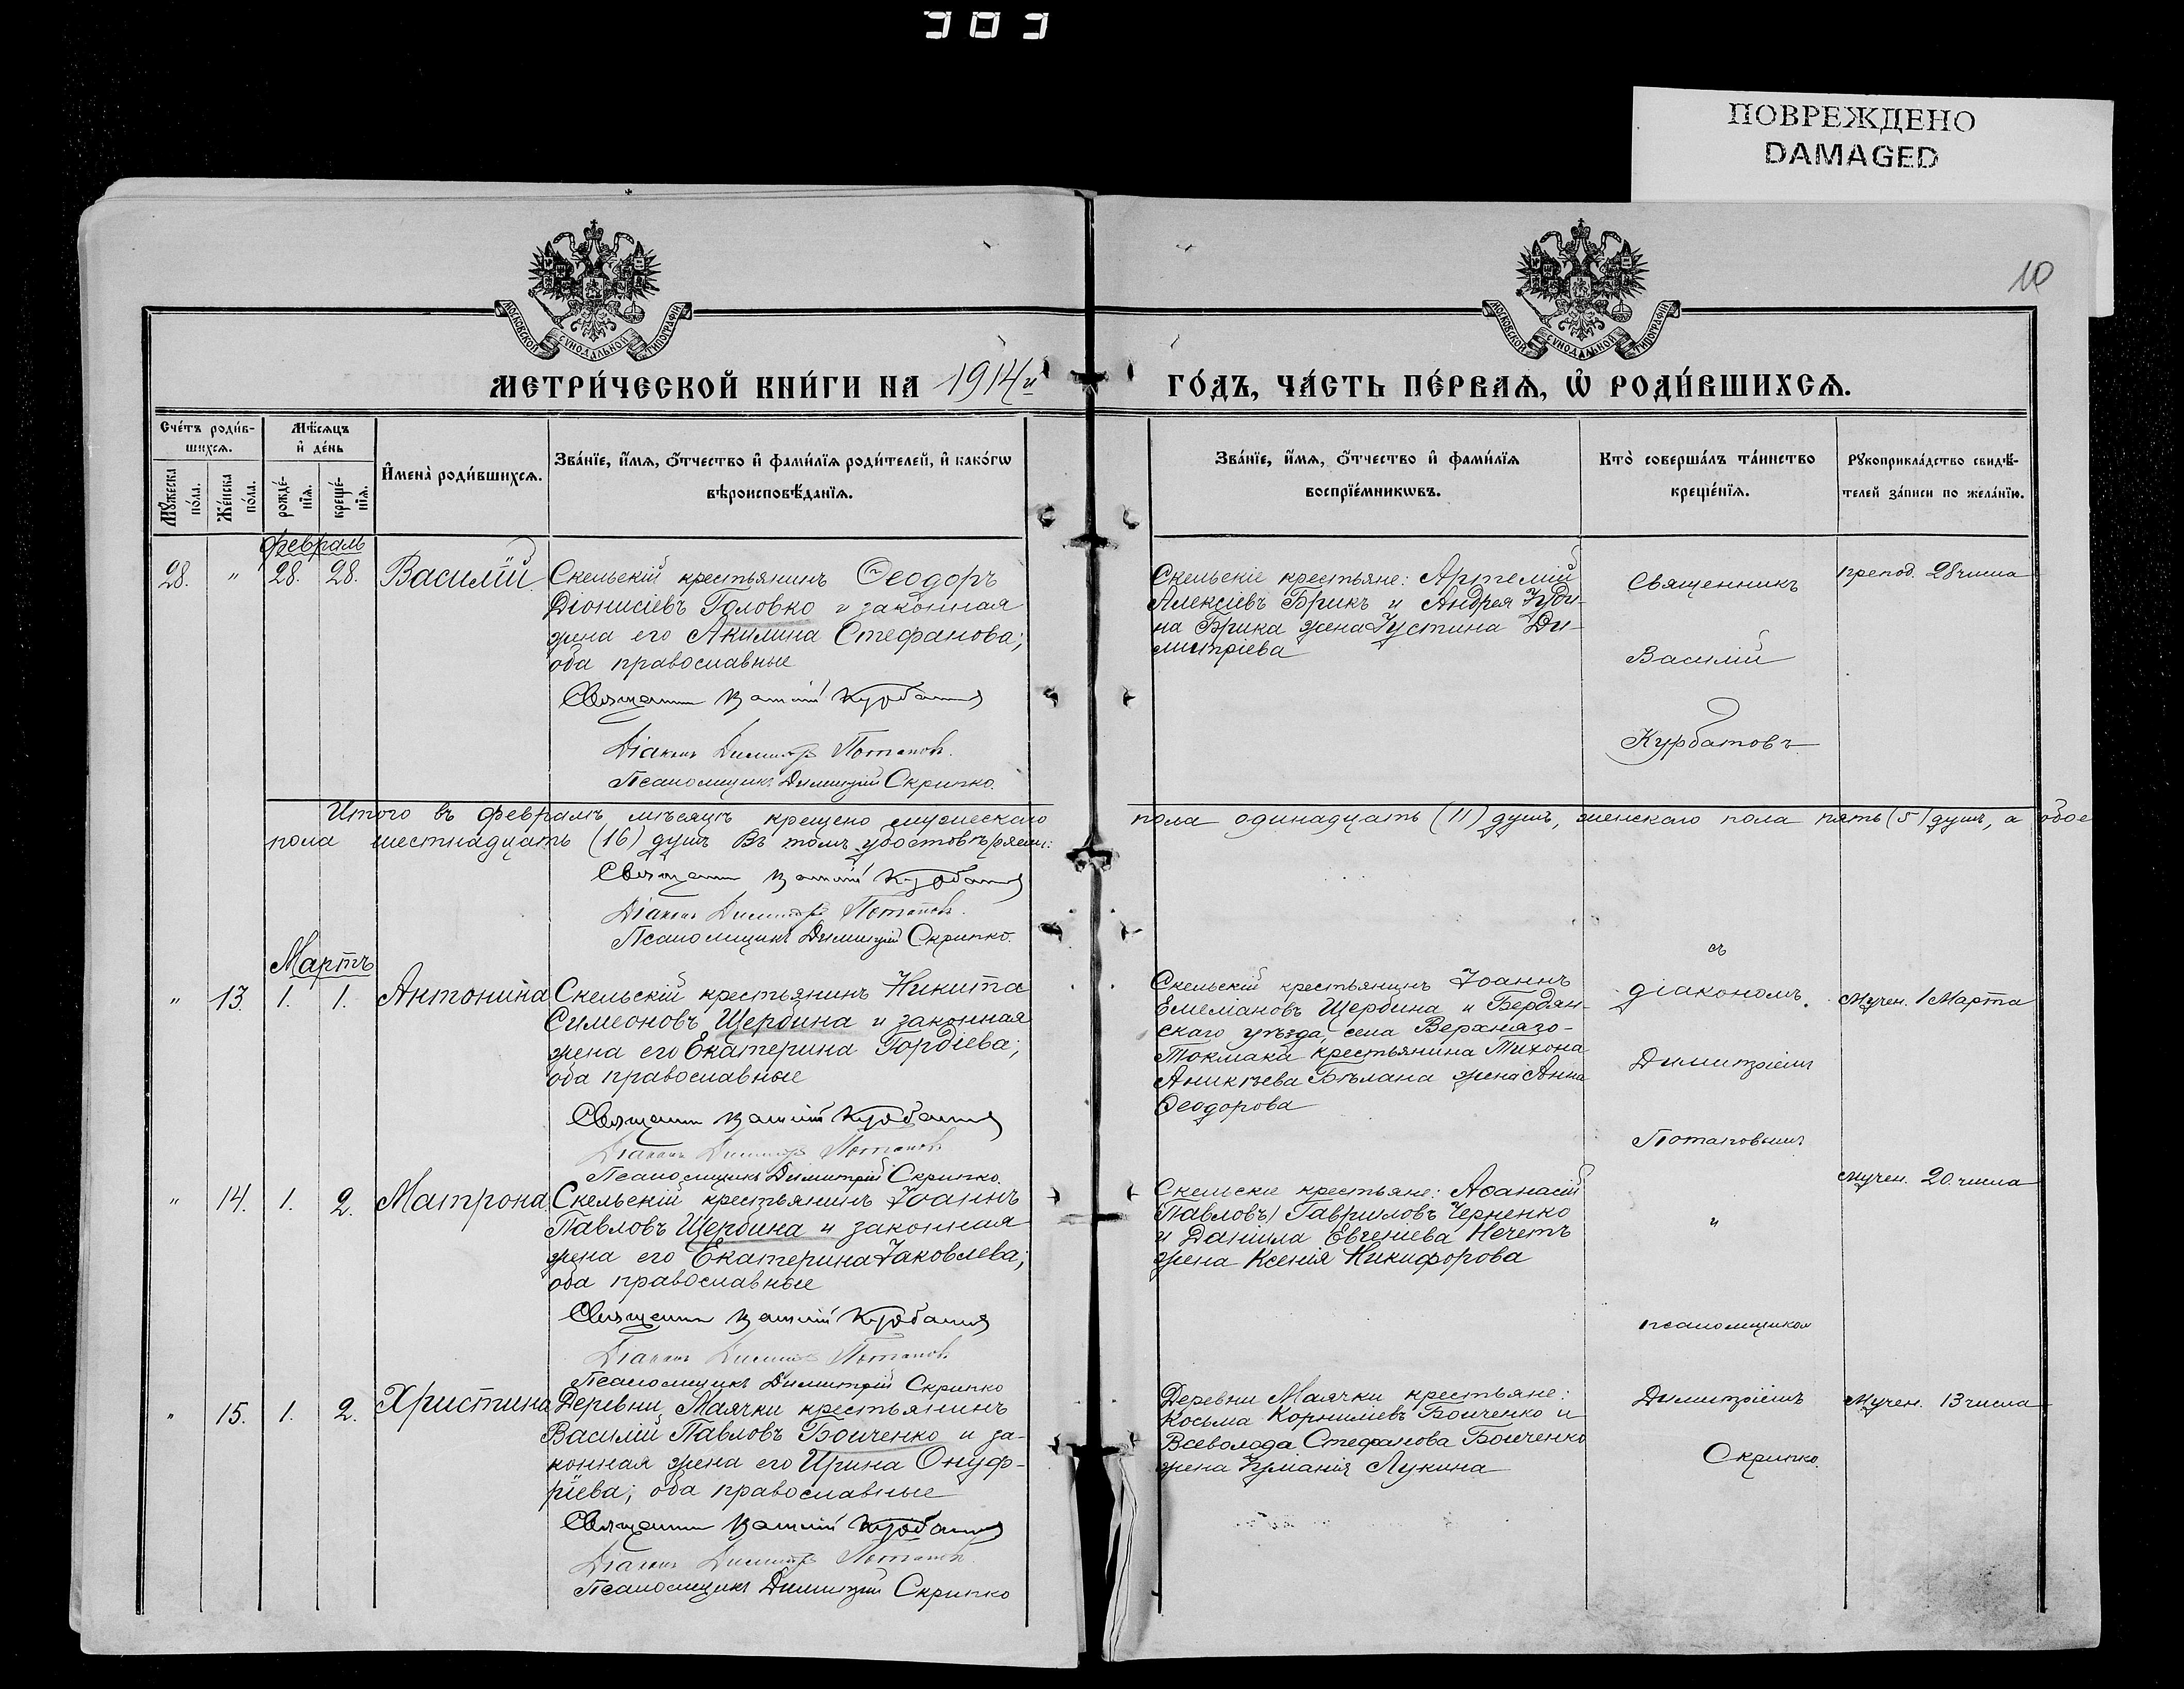 303
ПОВРЕЖДЕНО
DAMAGED
10
МОСКОВСКОЙ СѴНОДАЛЬНОЙ ТИПОГРАФІИ
МОСКОВСКОЙ СѴНОДАЛЬНОЙ ТИПОГРАФІИ
МЕТРИ́ЧЕСКОЙ КНИ́ГИ НА 1914й ГО́ДЪ, ЧА́СТЬ ПЕ́РВАѦ, Ѡ҆ РОДИ́ВШИХСѦ.
Сче́тъ роди́в-
шихсѧ.
Мꙋжеска по́ла.
Же́нска по́ла.
Мѣ́сѧцъ
и҆ де́нь
рожде́-
нїѧ.
креще́-
нїѧ.
И҆мена̀ роди́вшихсѧ.
Зва́нїе, и҆́мѧ, ѻ҆́тчество и҆ фами́лїѧ роди́телей, и҆ како́гѡ
вѣроисповѣ́данїѧ.
Зва́нїе, и҆́мѧ, ѻ҆́тчество и҆ фами́лїѧ
воспрїе́мникѡвъ.
Кто̀ соверша́лъ та́инство
креще́нїѧ.
Рꙋкоприкла́дство свидѣ́-
телей за́писи по жела́нїю.
февраль
28. " 28. 28. Василій
Скельскій крестьянинъ Ѳеодоръ
Діонисіевъ Головко и законная
жена его Акилина Стефанова;
оба православные
Священникъ Василій Курбатовъ
Діаконъ Димитрій Потаповъ.
Псаломщикъ Димитрій Скрипко.
Скельскіе крестьяне: Артемій
Алексіевъ Брикъ и Андрея
на Брика жена Іустина Ди-
митріева
Священникъ
Василій
Курбатовъ
препод. 28 числа
Итого въ февралѣ мѣсяцѣ крещено мужескаго пола одинадцать (11) душъ, женскаго пола пять (5) душъ, а обое
пола шестнадцать (16) душъ Въ томъ удостовѣряемъ:
Священникъ Василій Курбатовъ
Діаконъ Димитрій Потаповъ.
Псаломщикъ Димитрій Скрипко.
Мартъ
" 13. 1. 1. Антонина
Скельскій крестьянинъ Никита
Симеоновъ Щербина и законная
жена его Екатерина Гордіева;
оба православные
Священникъ Василій Курбатовъ
Діаконъ Димитрій Потаповъ
Псаломщикъ Димитрій Скрипко.
Скельскій крестьянинъ Іоаннъ
Емеліановъ Щербина и Бердян-
скаго уѣзда, села Верхняго-
Токмака крестьянина Тихона
Аникѣева Бѣлана жена Анна
Ѳеодорова
съ
діакономъ
Димитріемъ
Потаповымъ
мучен. 1 Марта
" 14. 1. 2. Матрона
Скельскій крестьянинъ Іоаннъ
Павловъ Щербина и законная
жена его Екатерина Іаковлева;
оба православные
Священникъ Василій Курбатовъ
Діаконъ Димитрій Потаповъ.
Псаломщикъ Димитрій Скрипко
Скельскіе крестьяне: Аѳанасій
(Павловъ) Гавриловъ Черненко
и Даніила Евгеніева Нечетъ
жена Ксенія Никифорова
и
псаломщикомъ
мучен. 20. числа
" 15. 1. 2. Христина
Деревни Маячки крестьянинъ
Василій Павловъ Бойченко и за-
конная жена его Ирина Онуф-
ріева; оба православные
Священникъ Василій Курбатовъ
Діаконъ Димитрій Потаповъ.
Псаломщикъ Димитрій Скрипко
Деревни Маячки крестьяне:
Косьма Корниліевъ Бойченко и
Всеволода Стефанова Бойченко
жена Іуліанія Лукина
Димитріемъ
Скрипко.
мучен. 13 числа